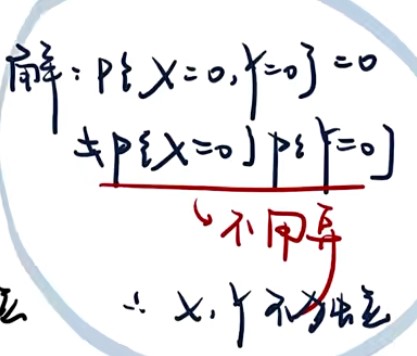 解：P{X=0,Y=0}=0
≠P{X=0}P{Y=0}
不用算
立 ∴ X,Y不独立